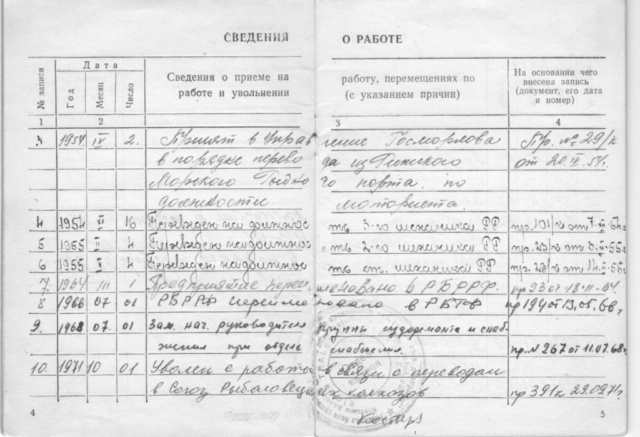 СВЕДЕНИЯ О РАБОТЕ
№ записи
Дата
Год
Месяц
Число
Сведения о приеме на работу, перемещениях по
работе и увольнении (с указанием причин)
На основании чего
внесена запись
(документ, его дата
и номер)
1 2 3 4
3 1954 IV 2. Принят в Управление Госморлова Пр. № 29/к
в порядке перевода из Рижского от 20.IV.54.
Морского Рыбного порта по
должности моториста.
4 1954 VI 16 Переведен на должность 3-го механика
5 1955 4 Переведен на должность 2-го механика
6 1955 4 Переведен на должность ст. механика
7. 1964 III 1 Предприятие переименовано в РБРРФ. пр 93 от 18.II.64
8 1966 07 01 РБРРФ переименовано в РБТФ пр 194 от 13.05.66г.
9. 1968 07 01 Зам. нач. руководителя группы судоремонта и снаб
жения при отделе снабжения. пр. № 267 от 11.07.68г
10. 1971 10 01 Уволен с работы в связи с переводом
в Союз Рыболовецких колхозов пр 391к 29.09.71г
4 5